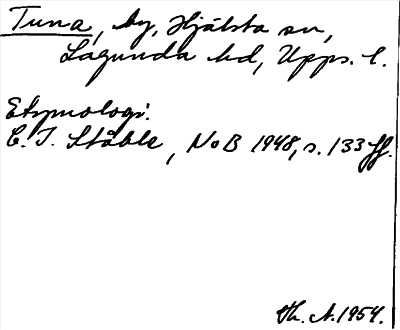 Tuna, by, Hjälsta sn,
Lagunda hd, Upps. l.
Etymologi:
C. I. Ståhle, NoB 1948, s. 133 ff.
Th. A. 1954.